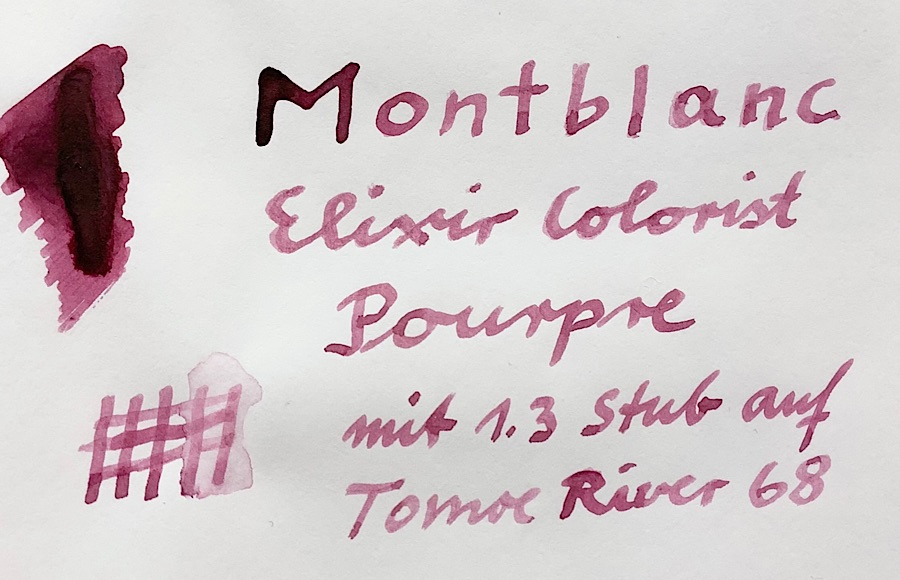 Montblanc
Elixir Colorist
Pourpre
mit 1.3 Stub auf
Tomoe River 68